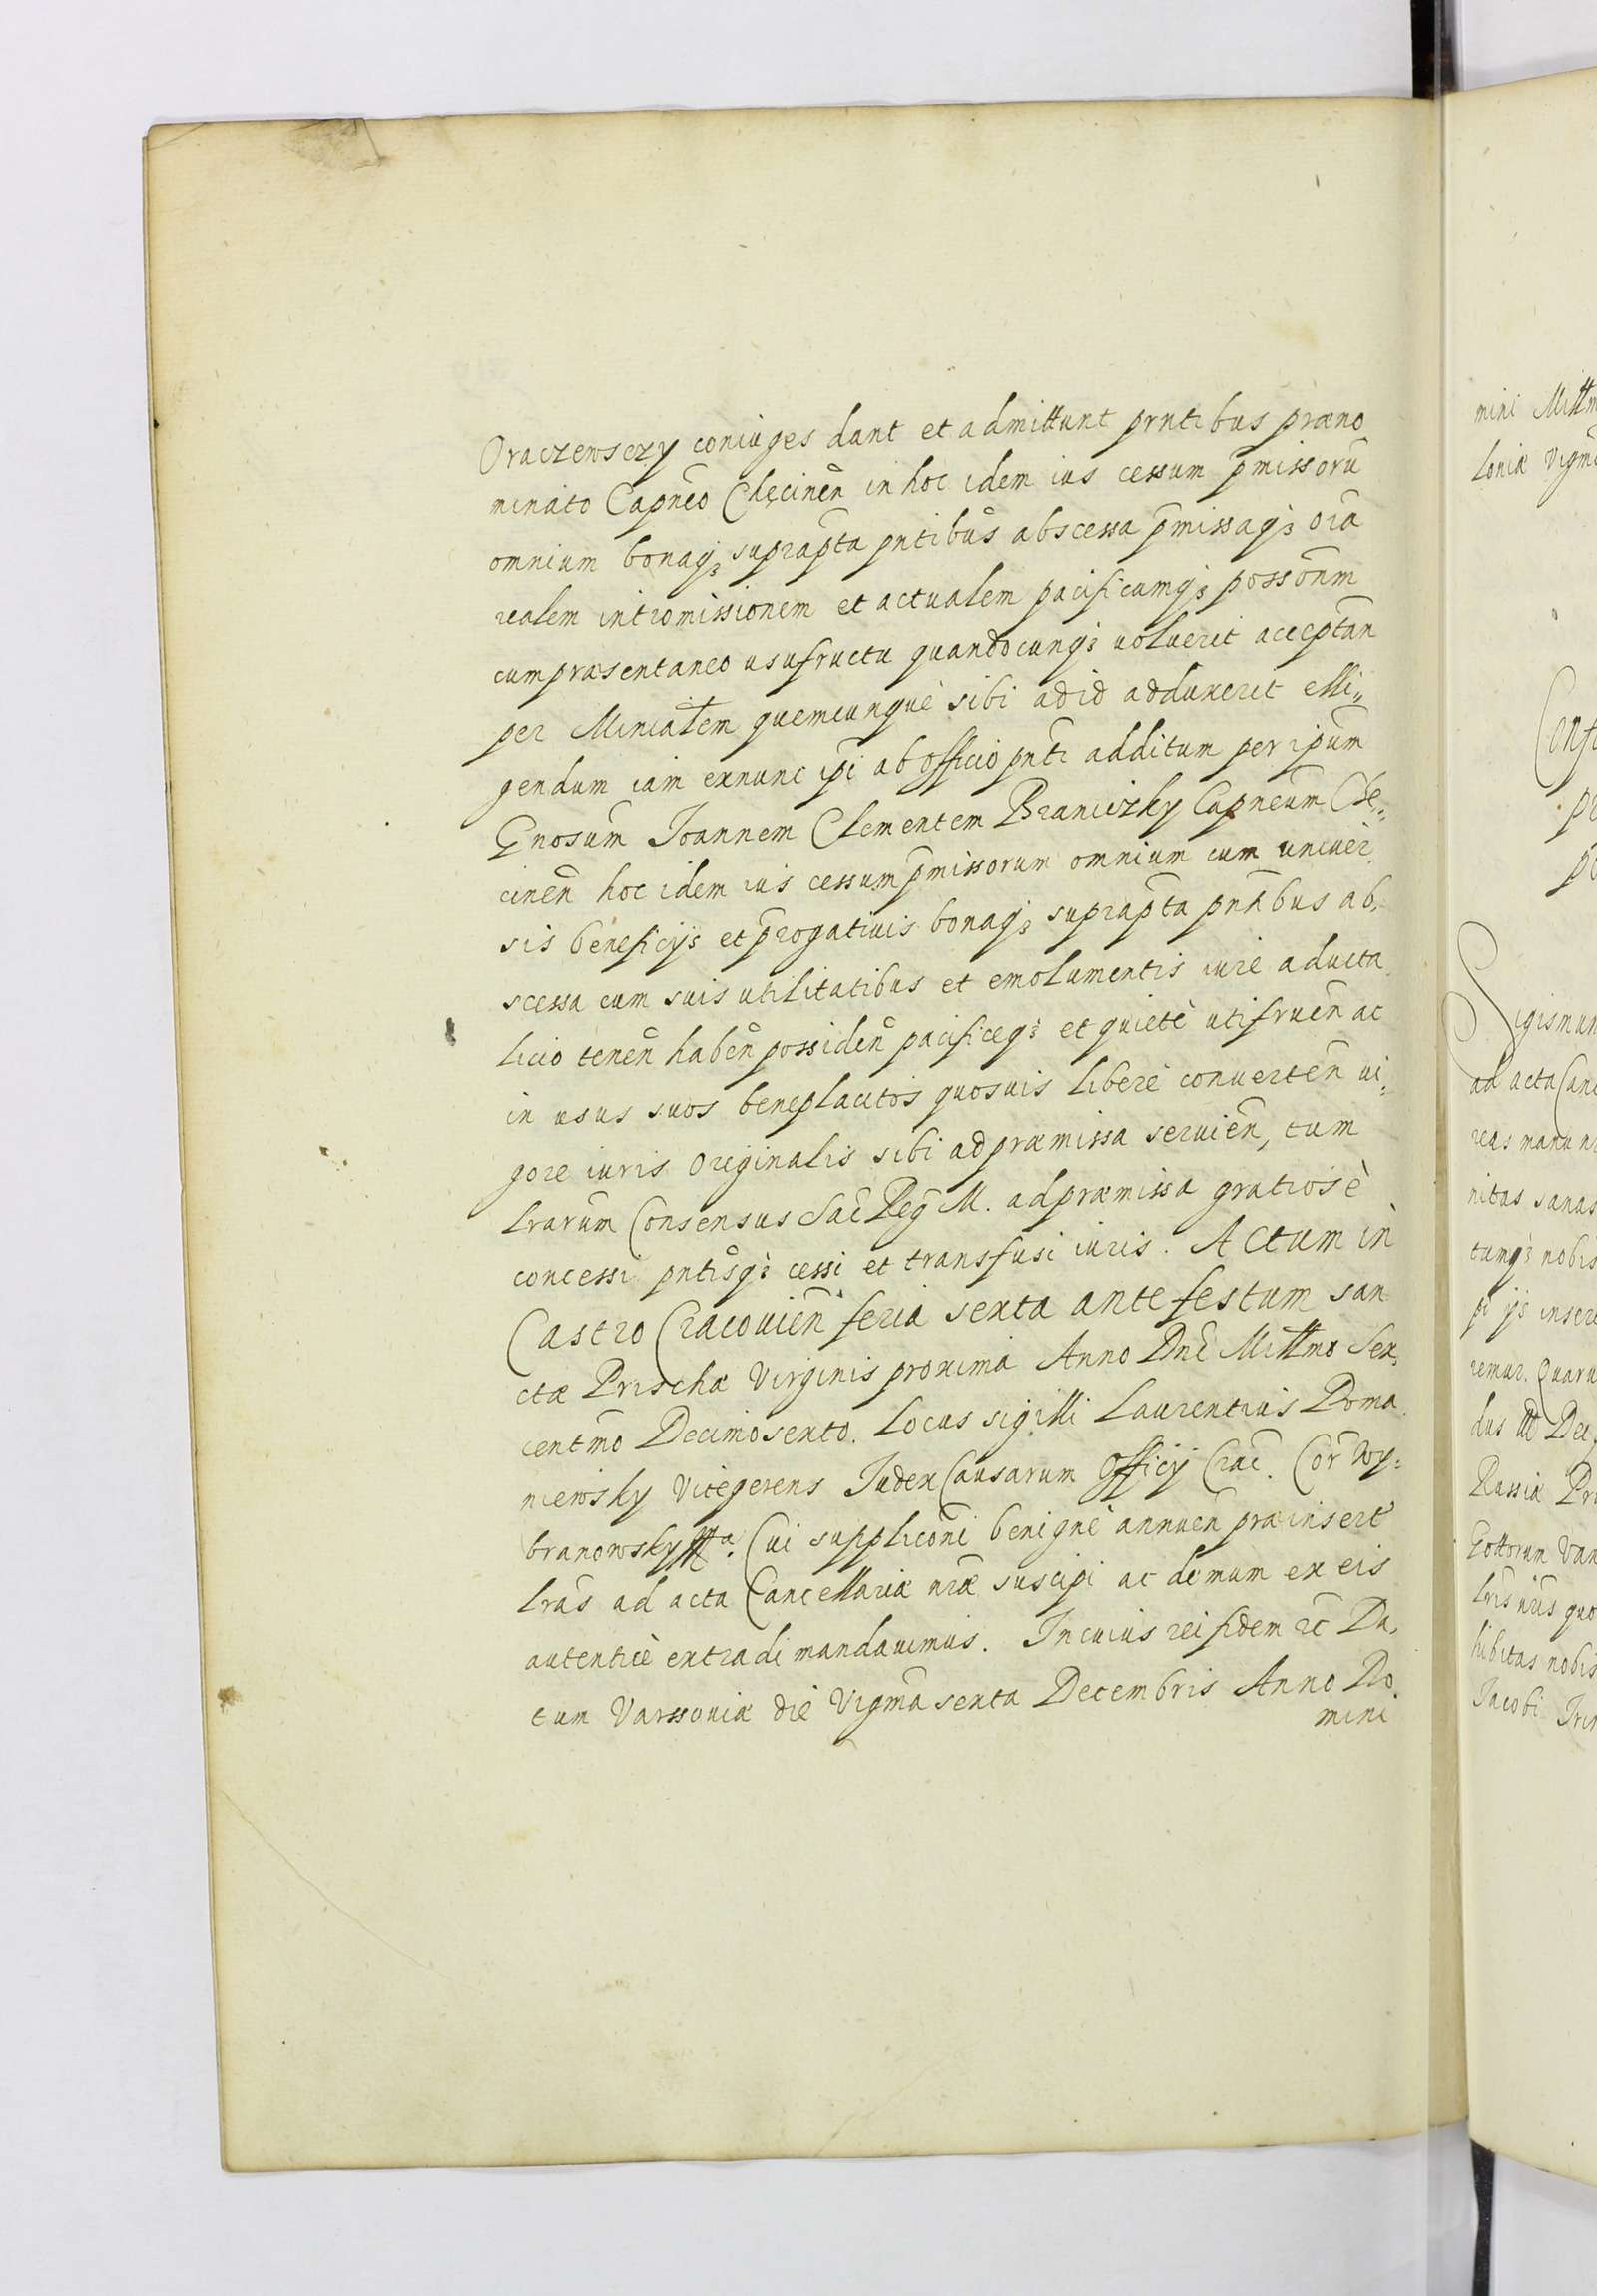 Oraczewsczy coniuges dant et admittunt prntibus præno
minato Capneo Chęcinen̄ in hoc idem ius cessum p̄missorū
omnium bonaq3 suprap̄ta pntibus abscessa p̄missaq3 oīa
realem intromissionem et actualem pacificamq3 possonm̄
cum præsentaneo usufructu quandocunq3 voluerit acceptan̄
per Minialem quemcunque sibi ad id adduxerit elli„
gendum iam exnunc ip̄i ab officio pnti additum per ipum̄
Gnosum Joannem Clementem Braniczky Capneum Che„
cinen̄ hoc idem ius cessum p̄missorum omnium cum univer
sis beneficijs et p̄rogativis bonaq3 suprap̄ta pntibus ab,
scessa cum suis utilitatibus et emolumentis iure aducta
licio tenen̄ haben̄ possiden̄ pacificeq3 et quietè utifruen̄ ac
in usus suos beneplacitos quosvis liberè converten̄ vi„
gore iuris originalis sibi ad præmissa servien̄, tum
lrarum Consensus Sac̄ Reḡ M. ad præmissa gratiosè
concessi pntisq3 cessi et transfusi iuris. Actum in
Castro Cracovien̄ feria sexta ante festum san
ctæ Prischæ Virginis proxima Anno Dnī Millmo Sex,
centmō Decimosexto. Locus sigilli Laurentius Roma
niewsky Vicegerens Judex Causarum Officij Crac̄. Cor̄ Wy=
branowsky Mp̄a. Cui suppliconī benignè annuen̄ præinsert
lrās ad acta Cancellariæ nrǣ suscipi ac demum ex eis
autenticè extradi mandavimus. In cuius rei fidem rc̄ Da,
tum Varssoviæ die Vigmā sexta Decembris Anno Do.
mini
mini Millm
loniæ Vigm
Conf
pr
po
Sigismun
ad acta Canc
reas manu n
nitas sanas
tumq3 nobis
pi ijs insere
remur. Quaru
dus III Dei
Russiæ Pru
Gottorum Van
lrīs nrīs quo
hibitas nobis
Jacobi